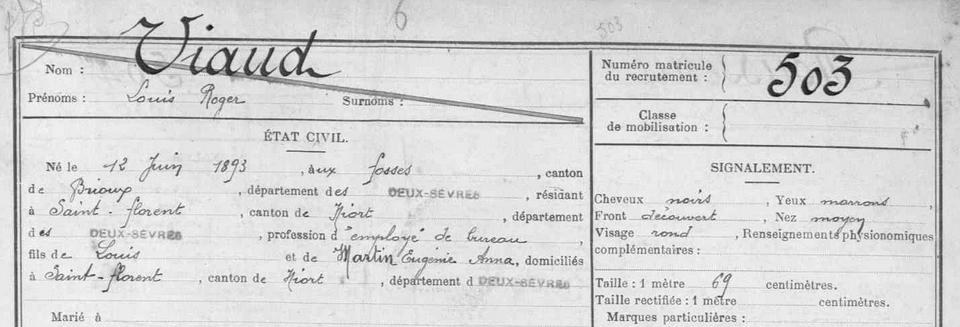 6
503
Nom : Viaud
Prénoms : Louis Roger Surnoms :
Numéro matricule du recrutement : 503
Classe de mobilisation :
ÉTAT CIVIL.
Né le 12 Juin 1893, aux fosses, canton
de Brioux, département des DEUX-SÈVRES, résidant
à Saint-florent, canton de Niort, département
des DEUX-SÈVRES, profession d'"employé" de bureau,
fils de Louis et de Martin Eugénie Anna, domiciliés
à Saint-florent, canton de Niort, département d DEUX-SÈVRES
Marié à
SIGNALEMENT.
Cheveux noirs, Yeux marrons,
Front découvert, Nez moyen
Visage rond, Renseignements physionomiques
complémentaires :
Taille : 1 mètre 69 centimètres.
Taille rectifiée : 1 mètre centimètres.
Marques particulières :